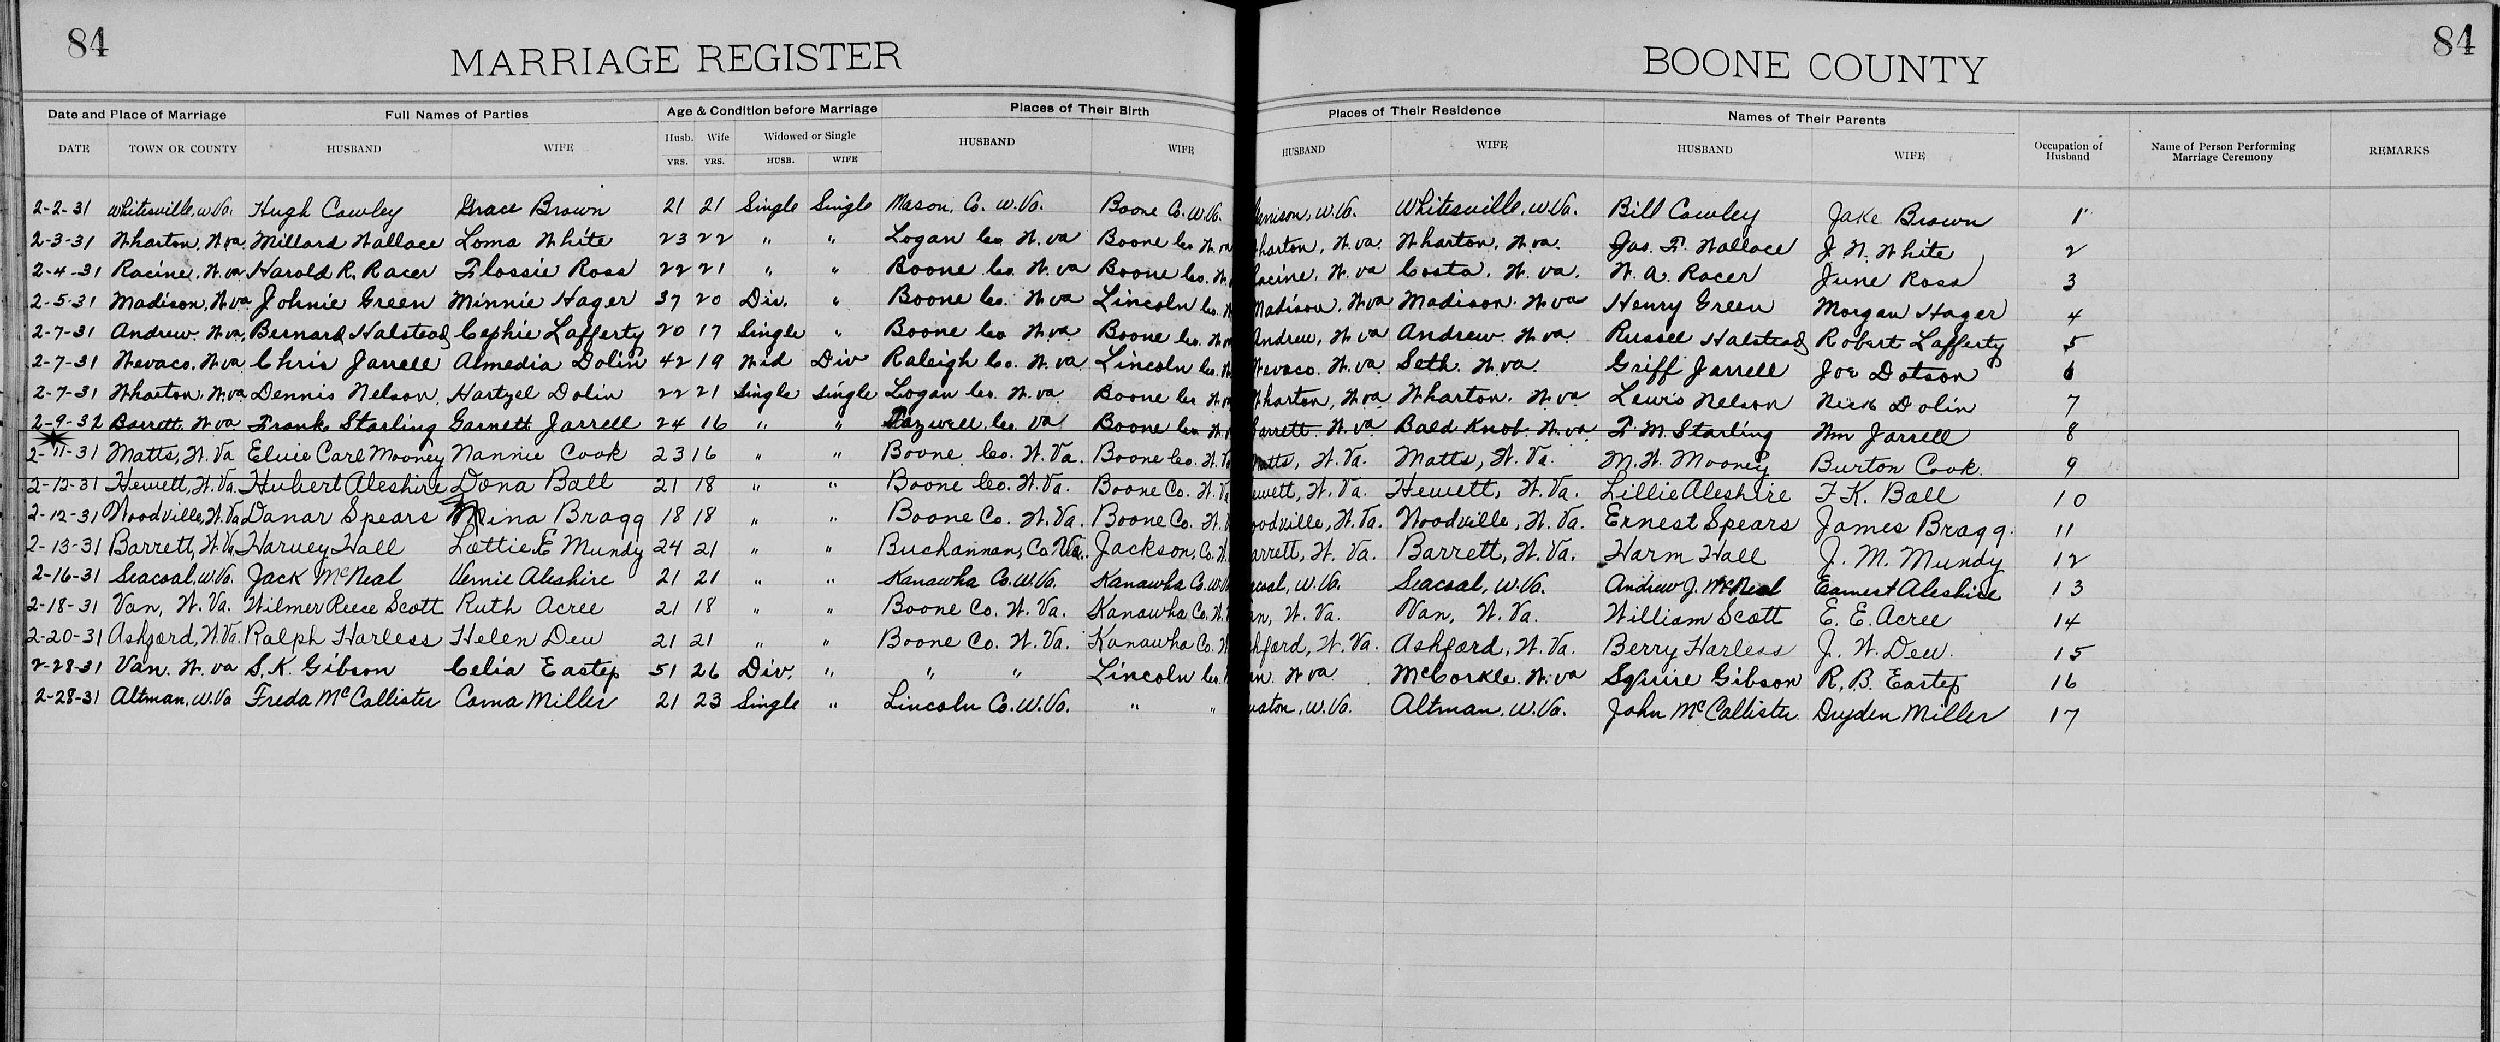 84
MARRIAGE REGISTER
BOONE COUNTY
84
Date and Place of Marriage Full Names of Parties Age & Condition before Marriage Places of Their Birth Places of Their Residence Names of Their Parents
DATE TOWN OR COUNTY HUSBAND WIFE Husb. Wife Widowed or Single HUSBAND WIFE HUSBAND WIFE HUSBAND WIFE Occupation of Husband Name of Person Performing Marriage Ceremony REMARKS
YRS. YRS. HUSB. WIFE
2-2-31 Whitesville, W.Va. Hugh Cawley Grace Brown 21 21 Single Single Mason, Co. W.Va. Boone Co. W.Va. W.Va. Whitesville, W.Va. Bill Cawley Jake Brown 1
2-3-31 Wharton, W.Va. Millard Wallace Loma White 23 22 " " Logan Co. W.Va Boone Co W.Va harton, W.Va. Wharton, W.Va. Jas. F. Wallace J. N. White 2
2-4-31 Racine, W.Va Harold R. Racer Flossie Ross 22 21 " " Boone Co. W.Va Boone Co. W. acine, W.Va Costa, W.Va. W. A. Racer June Ross 3
2-5-31 Madison, W.Va Johnie Green Minnie Hager 37 20 Div. " Boone Co. W.Va Lincoln Co. W Madison, W.Va Madison, W.Va Henry Green Morgan Hager 4
2-7-31 Andrew. W.Va. Bernard Halstead Cephie Lafferty 20 17 Single " Boone Co W.Va Boone Co. W.Va Andrew, W.Va Andrew W.Va Russell Halstead Robert Lafferty 5
2-7-31 Nevaco. W.Va Chris Jarrell Almedia Dolin 42 19 Wid Div Raleigh Co. W.Va Lincoln Co. W Nevaco. W.Va Seth W.Va Griff Jarrell Joe Dotson 6
2-7-31 Wharton. W.Va Dennis Nelson Hartzel Dolin 22 21 Single Single Logan Co. W.Va Boone Co W.Va harton, W.Va. Wharton. W.Va Lewis Nelson Nick Dolin 7
2-9-32 Barrett. W.Va Frank Starling Garnett Jarrell 24 16 " " Tazwell, Co. Va Boone Co W arrett. W.Va Bald Knob W.Va F. M. Starling Wm Jarrell 8
2-11-31 Matts, W.Va Elvie Carl Mooney Nannie Cook 23 16 " " Boone Co. W.Va. Boone Co. W.Va atts, W.Va. Matts, W.Va. M. W. Mooney Burton Cook. 9
2-12-31 Hewett, W.Va. Hubert Aleshire Dona Ball 21 18 " " Boone Co. W.Va. Boone Co. W.Va ewett, W.Va. Hewett, W.Va. Lillie Aleshire F K. Ball 10
2-12-31 Woodville, W.Va Danar Spears Mina Bragg 18 18 " " Boone Co. W.Va. Boone Co. W. oodville, W.Va. Woodville, W.Va. Ernest Spears James Bragg. 11
2-13-31 Barrett, W.Va Harvey Hall Lottie E Mundy 24 21 " " Buchannan, Co. Va. Jackson, Co. W. arrett, W.Va. Barrett, W.Va. Harm Hall J. M. Mundy 12
2-16-31 Seacoal, W.Va. Jack McNeal Vernie Aleshire 21 21 " " Kanawha Co. W.Va. Kanawha Co. W.Va coal, W.Va. Seacoal, W.Va. Andrew J. McNeal Earnest Aleshire 13
2-18-31 Van, W.Va. Wilmer Reece Scott Ruth Acree 21 18 " " Boone Co. W.Va. Kanawha Co. W. an, W.Va. Van, W.Va. William Scott E. E. Acree 14
2-20-31 Ashford, W.Va. Ralph Harless Helen Dew 21 21 " " Boone Co. W.Va. Kanawha Co. W hford, W.Va. Ashford, W.Va. Berry Harless J. W. Dew. 15
2-28-31 Van. W.Va S. K. Gibson Celia Eastep 51 26 Div. " " " Lincoln Co. an W.Va McCorkle. W.Va Squire Gibson R. B. Eastep 16
2-28-31 Altman, W.Va Freda McCallister Coma Miller 21 23 Single " Lincoln Co. W.Va. " " W.Va. Altman, W.Va. John McCallister Dryden Miller 17